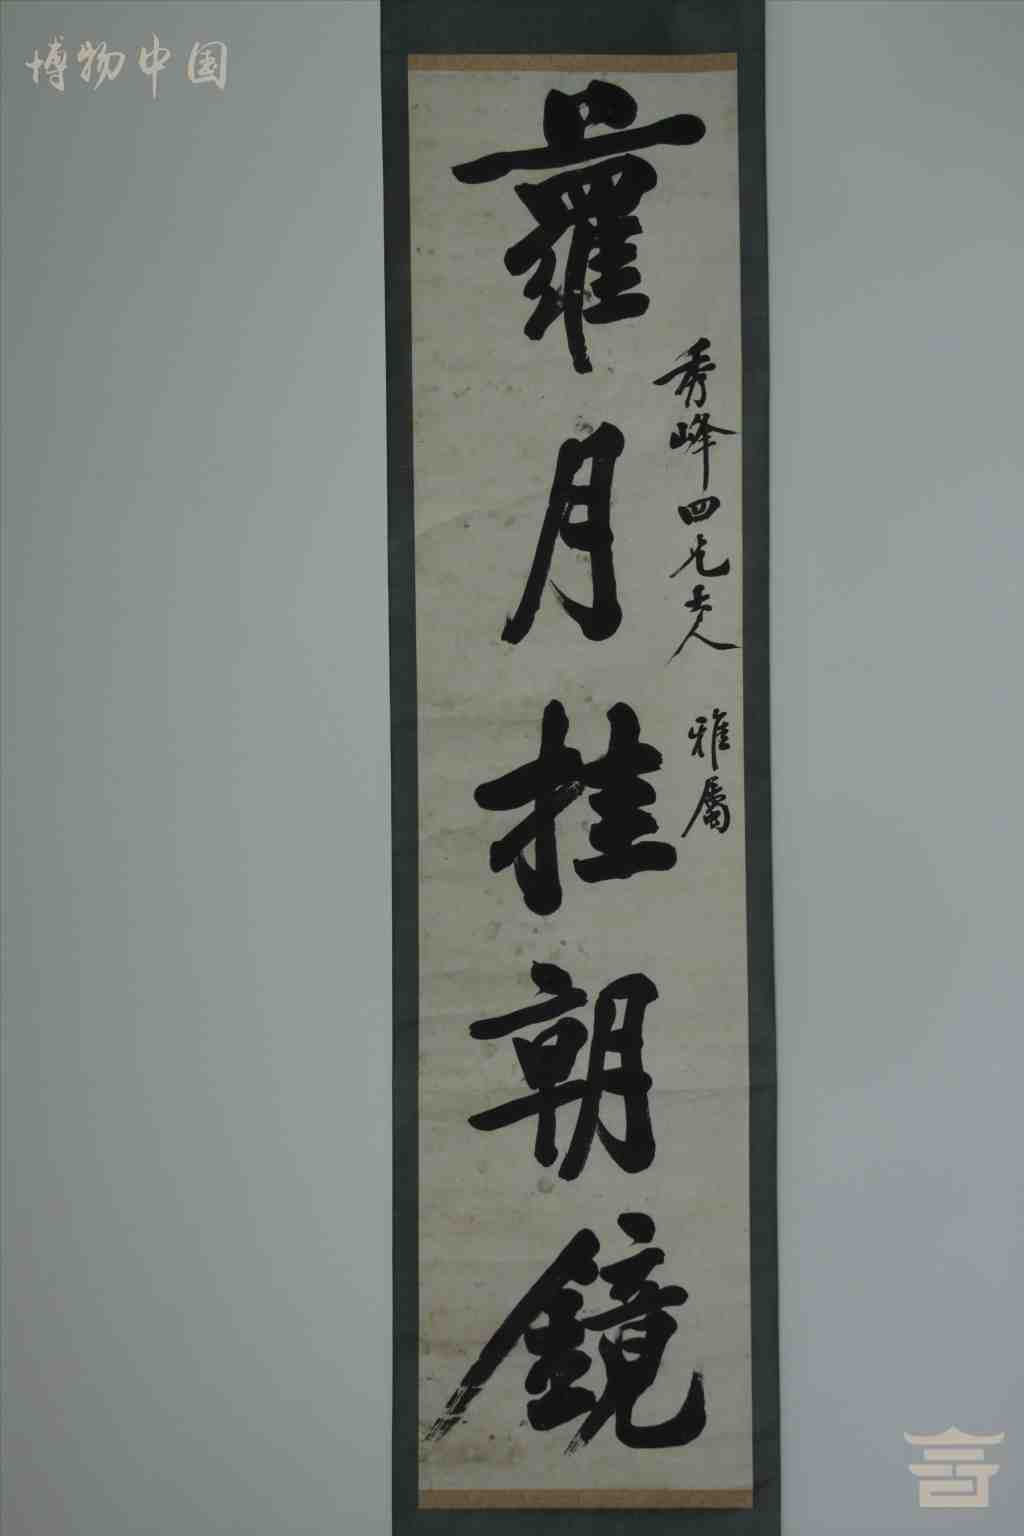 博物中国
秀峰四兄大人 雅屬
蘿月挂朝鏡